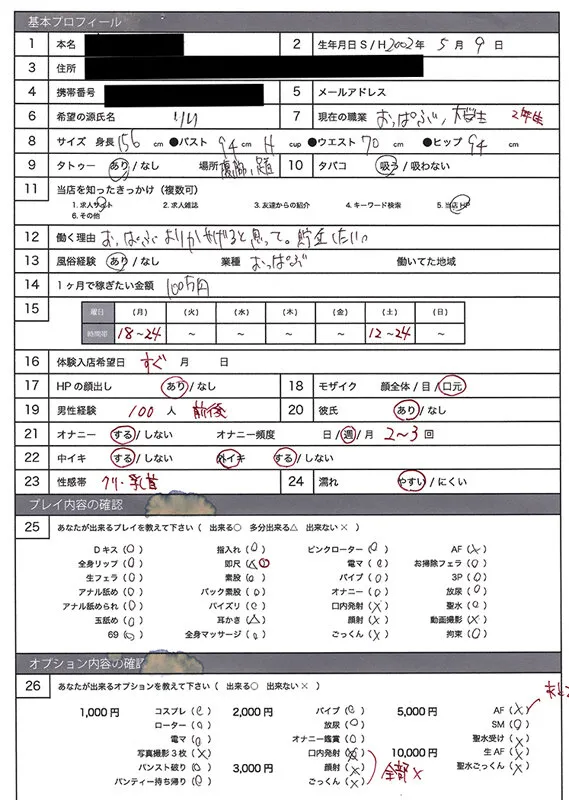 基本プロフィール
1 本名 2 生年月日 S / H 2002年 5月 9日
3 住所
4 携帯番号 5 メールアドレス
6 希望の源氏名 リリ 7 現在の職業 おっぱぶ、大学生 2年生
8 サイズ 身長 156 cm ●バスト 94 cm H cup ●ウエスト 70 cm ●ヒップ 94 cm
9 タトゥー あり / なし 場所 10 タバコ 吸う / 吸わない
11 当店を知ったきっかけ（複数可）
1. 求人サイト 2. 求人雑誌 3. 友達からの紹介 4. キーワード検索 5. 当店HP
6. その他
12 働く理由 おっぱぶよりかせげると思って。貯金したい
13 風俗経験 あり / なし 業種 おっぱぶ 働いてた地域
14 1ヶ月で稼ぎたい金額 100万円
15 曜日 (月) (火) (水) (木) (金) (土) (日)
時間帯 18~24 ~ ~ ~ ~ 12~24 ~
16 体験入店希望日 すぐ 月 日
17 HPの顔出し あり / なし 18 モザイク 顔全体 / 目 / 口元
19 男性経験 100 人 前後 20 彼氏 あり / なし
21 オナニー する / しない オナニー頻度 日 / 週 / 月 2~3 回
22 中イキ する / しない 外イキ する / しない
23 性感帯 クリ・乳首 24 濡れ やすい / にくい
プレイ内容の確認
25 あなたが出来るプレイを教えて下さい（ 出来る○ 多分出来る△ 出来ない× ）
Dキス (○) 指入れ (○) ピンクローター (○) AF (×)
全身リップ (○) 即尺 (△○) 電マ (○) お掃除フェラ (○)
生フェラ (○) 素股 (○) バイブ (○) 3P (○)
アナル舐め (○) バック素股 (○) オナニー (○) 放尿 (○)
アナル舐められ (○) パイズリ (○) 口内発射 (×) 聖水 (○)
玉舐め (○) 耳かき (△) 顔射 (×) 動画撮影 (×)
69 (○) 全身マッサージ (○) ごっくん (×) 拘束 (○)
オプション内容の確認
26 あなたが出来るオプションを教えて下さい（ 出来る○ 出来ない× ）
1,000円 コスプレ (○) 2,000円 バイブ (○) 5,000円 AF (×)
ローター (○) 放尿 (○) SM (○)
電マ (○) オナニー鑑賞 (○) 聖水受け (×)
写真撮影3枚 (×) 口内発射 (×) 10,000円 生AF (×)
パンスト破り (○) 3,000円 顔射 (×) 聖水ごっくん (×)
パンティー持ち帰り (○) ごっくん (×) 全部×